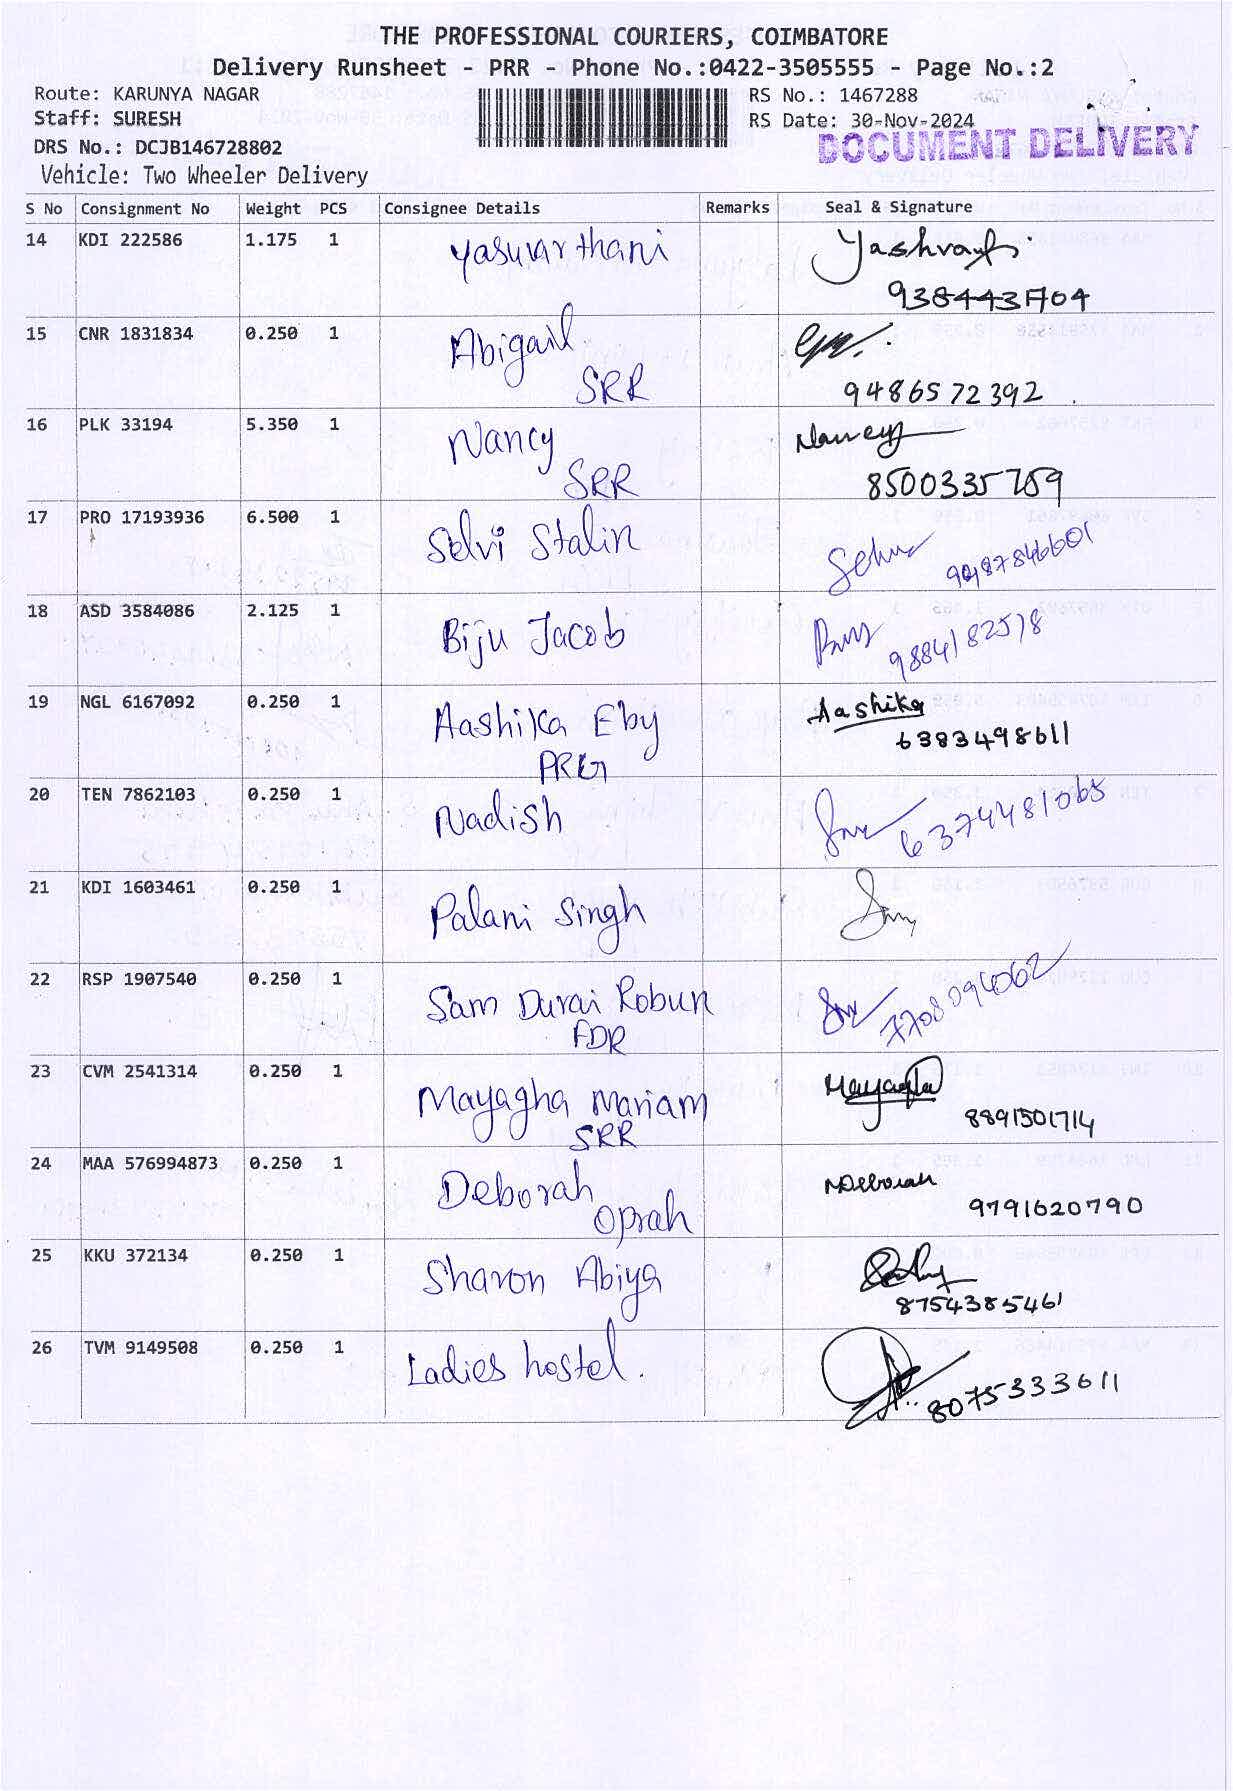 THE PROFESSIONAL COURIERS, COIMBATORE
Delivery Runsheet - PRR - Phone No.:0422-3505555 - Page No.:2
Route: KARUNYA NAGAR RS No.: 1467288
Staff: SURESH RS Date: 30-Nov-2024
DRS No.: DCJB146728802 DOCUMENT DELIVERY
Vehicle: Two Wheeler Delivery
S No Consignment No Weight PCS Consignee Details Remarks Seal & Signature
14 KDI 222586 1.175 1 Yasuvarthani
15 CNR 1831834 0.250 1 Abigail
SRR 9486572392
16 PLK 33194 5.350 1 Nancy Nancy
SRR 8500335759
17 PRO 17193936 6.500 1 Selvi Stalin
18 ASD 3584086 2.125 1 Biju Jacob 9884182518
19 NGL 6167092 0.250 1 Aashika Eby Aashika
PRG 6383498611
20 TEN 7862103 0.250 1 Nadish 6374481065
21 KDI 1603461 0.250 1 Palani Singh
22 RSP 1907540 0.250 1 Sam Durai Robun 7708094062
FDR
23 CVM 2541314 0.250 1 Mayagha Mariam Mayagha
SRR 8891501714
24 MAA 576994873 0.250 1 Deborah Deborah
Oprah 9791620790
25 KKU 372134 0.250 1 Sharon Abiya
8754385461
26 TVM 9149508 0.250 1 Ladies hostel.
8075333611